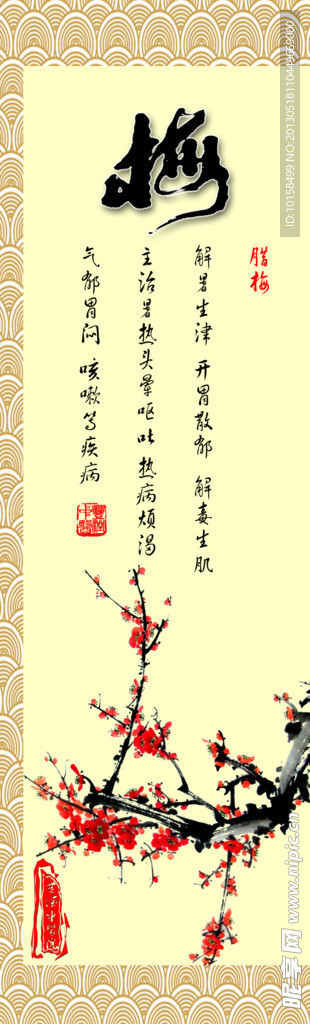 梅
腊梅
解暑生津 开胃散郁 解毒生肌
主治暑热头晕呕吐热病烦渴
气郁胃闷 咳嗽等疾病
昵享网 www.nipic.cn
ID:10158499 NO:20130518110449669000